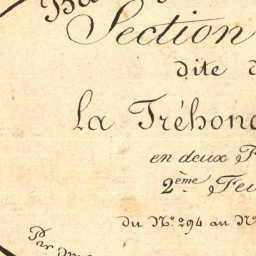 Section
dite
La Tréhon
en deux F
2ème Feu
du N° 294 au N°
Par